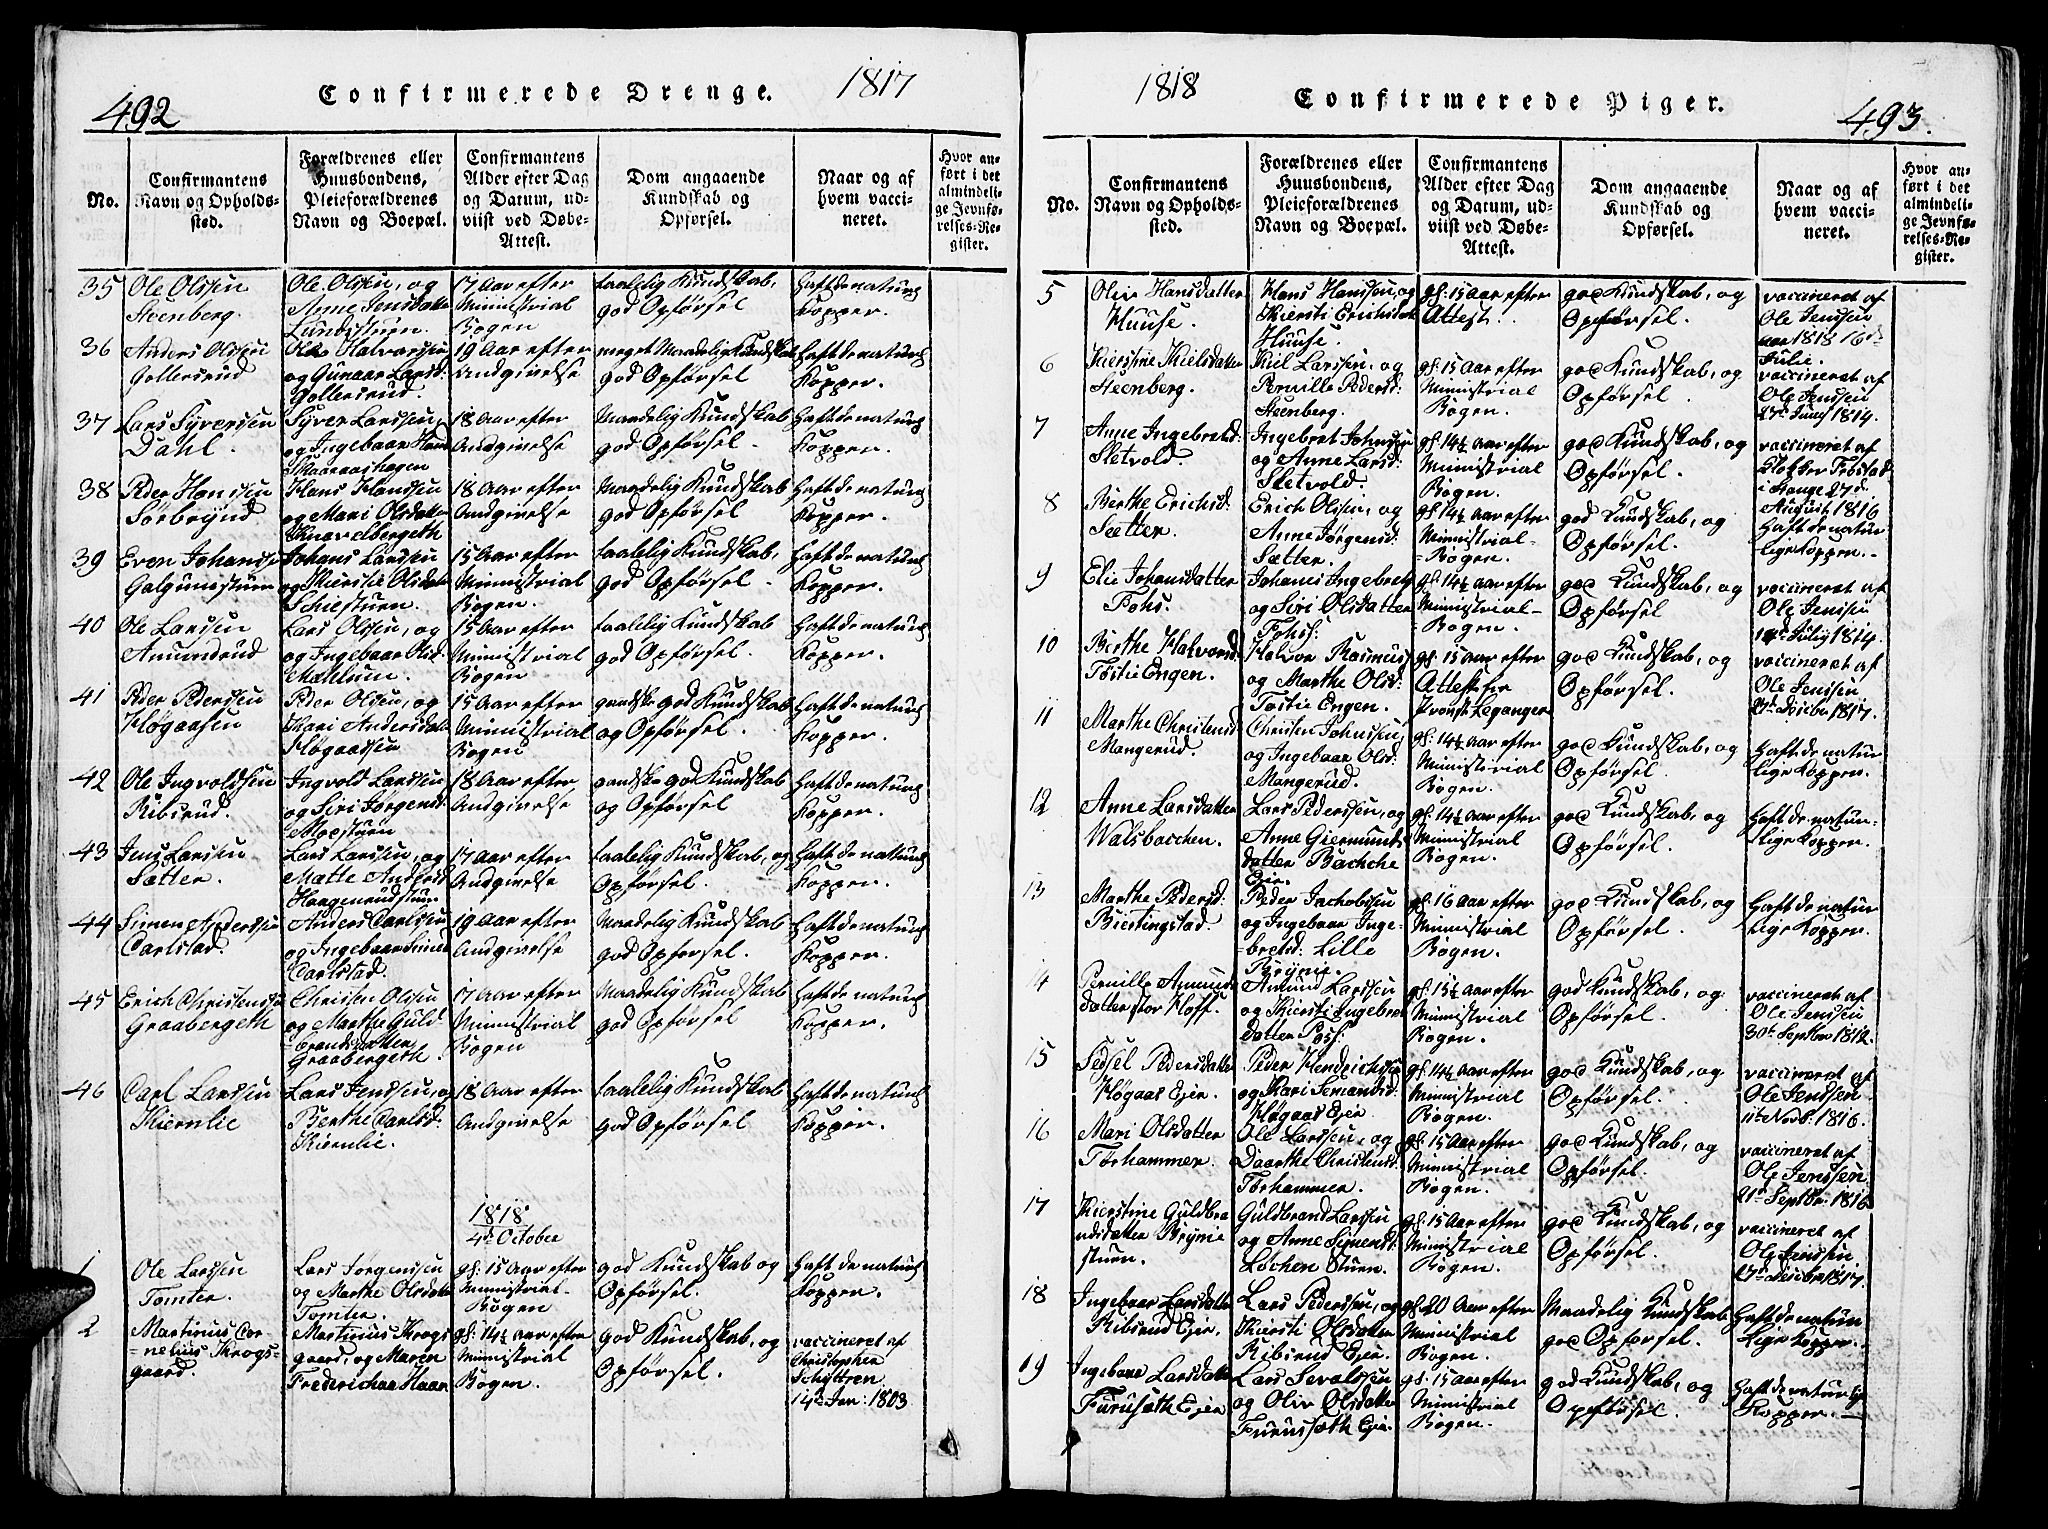 492
Confirmerede Drenge.
1817
No.
Confirmantens
Navn og Opholds-
sted.
Forældrenes eller
Huusbondens,
Pleieforældrenes
Navn og Boepæl.
Confirmantens
Alder efter Dag
og Datum, ud-
viist ved Døbe-
Attest.
Dom angaaende
Kundskab og
Opførsel.
Naar og af
hvem vacci-
neret.
Hvor an-
ført i det
almindeli-
ge Jevnfø-
relses-Re-
gister.
35 Ole Olssen
Steenberg.
Ole Olssen, og
Anne Jensdatter
Lundsstuen.
17 Aar efter
Ministrial
Bogen
taalelig Kundskab,
god Opførsel
Haft de naturlig
Kopper.
36 Anders Olssen
Gollersrud
Ole Halvorssen
og Gunaar Larsd:
Gollersrud.
19 Aar efter
Andgivelse
meget Maadelig Kundskab
god Opførsel
Haft de naturlig
Kopper.
37 Lars Syverssen
Dahl.
Syver Larssen,
og Ingebaar Hans
18 Aar efter
Andgivelse
Maadelig Kundskab
god Opførsel.
Haft de naturlig
Kopper.
38 Peder Hanssen
Sørbrynd
Hans Hanssen
og Mari Olsdatter
Knavelbergeth
18 Aar efter
Andgivelse
Maadelig Kundskab
god Opførsel
Haft de naturlig
Kopper.
39 Even Johanss
Galgumsstuen
Johans Larssen
og Kierstie Olsdatter
Schiesstuen.
15 Aar efter
Ministrial
Bogen.
taalelig Kundskab,
god Opførsel.
Haft de naturlig
Kopper.
40 Ole Larssen
Amundrud
Lars Olssen, og
og Ingebaar Olsd:
Mæhlum.
15 Aar efter
Ministrial
Bogen
taalelig Kundskab
god Opførsel.
Haft de naturlig
Kopper.
41 Peder Pederssen
Kløgaasen
Peder Olssen, og
Kari Andersdatter
Kløgaasen
15 Aar efter
Ministrial
Bogen
gandske god Kundskab
og Opførsel.
Haft de naturlig
Kopper.
42 Ole Ingvoldssen
Ribsrud.
Ingvold Larssen
og Siri Jørgensd:
Moestuen
18 Aar efter
Andgivelse
gandske god Kundskab
og Opførsel.
Haft de naturlig
Kopper.
43 Jens Larssen
Sætter.
Lars Larssen, og
Mætte Andersd
Haagenrudstuen
17 Aar efter
Andgivelse
taalelig Kundskab, og
Opførsel.
Haft de naturlig
Kopper.
44 Simen Anderssen
Carlstad.
Anders Carlssen
og Ingebaar Simens
Carlstad.
19 Aar efter
Andgivelse
Maadelig Kundskab
god Opførsel.
Haft de naturlig
Kopper.
45 Erich Christenssen
Graabergeth
Christen Olssen
og Marthe Guld-
=brandsdatter
Graabergeth
17 Aar efter
Ministrial
Bogen
Maadelig Kundskab
god Opførsel
Haft de naturlig
Kopper.
46 Carl Larssen
Kiernlie
Lars Jenssen, og
Berthe Carlsd:
Kiernlie.
18 Aar efter
Andgivelse
taalelig Kundskab
god Opførsel
Haft de naturlig
Kopper.
1818
4de October
1 Ole Larssen
Tomter.
Lars Jørgenssen
og Marthe Olsdatter
Tomter.
gl: 15 Aar efter
Ministrial-
Bogen
god Kundskab og
Opførsel.
Haft de naturlig
Kopper.
2 Martinus Cor-
=nelius Krogs-
gaard.
Martinus Krogs
gaard, og Maren
Frederichaa Haar
gl: 14½ Aar efter
Ministrial
Bogen.
god Kundskab, og
Opførsel.
vaccineret af
Christopher
Schøttren
14de Jan: 1803
1818
Confirmerede Piger.
493.
No.
Confirmantens
Navn og Opholds-
sted.
Forældrenes eller
Huusbondens,
Pleieforældrenes
Navn og Boepæl.
Confirmantens
Alder efter Dag
og Datum, ud-
viist ved Døbe-
Attest.
Dom angaaende
Kundskab og
Opførsel.
Naar og af
hvem vacci-
neret.
Hvor an-
ført i det
almindeli-
ge Jevnfø-
relses-Re-
gister.
5 Oliv Hansdatter
Huuse.
Hans Hanssen, og
Kiersti Erichsdat
Huuse.
gl: 15 Aar efter
Attest.
god Kundskab, og
Opførsel.
vaccineret af
Ole Jenssen
1818 16de
Julie.
6 Kierstine Kielsdatter
Steenberg.
Kiel Larssen, og
Pernille Pedersd:
Steenberg.
gl: 15 Aar efter
Ministrial
Bogen.
god Kundskab, og
Opførsel.
vaccineret af
Ole Jenssen
1814.
7 Anne Ingebretsd:
Sletvold.
Ingebret Johnssen
og Anne Larsd:
Sletvold.
gl: 14½ Aar efter
Ministrial
Bogen.
god Kundskab, og
Opførsel.
vaccineret af
Klokker
i Stange 27 d.
August 1816
8 Berthe Erichsd:
Sætter.
Erich Olssen, og
Anne Jørgensd:
Sætter.
gl: 14½ Aar efter
Ministrial-
=Bogen.
god Kundskab, og
Opførsel.
Haft de natur
lige Kopper.
9 Elie Johansdatter
Fohs.
Johans Ingebrets
og Siri Olsdatter
Fohs:
gl: 14½ Aar efter
Ministrial-
=Bogen.
god Kundskab, og
Opførsel
vaccineret af
Ole Jenssen
Julij 1814.
10 Birthe Halvorsd
Tøstie Engen.
Halvor Rasmuss
og Marthe Olsd:
Tøstie Engen.
gl: 15 Aar efter
Attest fra
Provst Leganger
god Kundskab, og
Opførsel.
vaccineret af
Ole Jenssen
1817.
11 Marthe Christensd
Mangerud.
Christen Johnssen,
og Ingebaar Olsd:
Mangerud.
gl: 14½ Aar efter
Ministrial
Bogen.
god Kundskab, og
Opførsel.
Haft de natur
lige Kopper.
12 Anne Larsdatter
Walsbacchen.
Lars Pederssen, og
Anne Giermunds
datter Bachche
Ejer.
gl: 14½ Aar efter
Ministrial
Bogen.
god Kundskab, og
Opførsel.
Haft de natur-
lige Kopper.
13 Marthe Pedersd:
Biestingstad.
Peder Jachobssen
og Ingebaar Inge-
=bretsd: Lille
Brynie.
gl: 16 Aar efter
Ministrial
Bogen.
god Kundskab, og
Opførsel.
Haft de natur
lige Kopper.
14 Pernille Amund
datter stor Hoff.
Amund Larssen
og Kiersti Ingebret
datter
gl: 15½ Aar efter
Ministrial
Bogen.
god Kundskab, og
Opførsel.
vaccineret af
Ole Jenssen
30te Septbr 1812.
15 Sedsel Pedersdatter
Kløgaas Ejer.
Peder Hendrichssen
og Kari Semandsd:
Kløgaas Ejer
gl: 14½ Aar efter
Ministrial
Bogen.
god Kundskab, og
Opførsel.
vaccineret af
Ole Jenssen
11te Novb: 1816.
16 Mari Olsdatter
Torhammer.
Ole Larssen, og
Daarthe Christensd:
Torhammer.
gl: 15 Aar efter
Ministrial
Bogen.
god Kundskab, og
Opførsel.
vaccineret af
Ole Jenssen
21de Septbr. 1816
17 Kierstine Guldbra
ndsdatter Brynie
stuen.
Guldbrand Larssen
og Anne Simensd:
Løchen Stuen.
gl: 15 Aar efter
Ministrial
Bogen.
god Kundskab, og
Opførsel.
vaccineret af
Ole Jenssen
1817.
18 Ingebaar Larsdatter
Ribsrud Ejer.
Lars Pederssen, og
Kiersti Olsdatter
Ribsrud Ejer.
gl: 20 Aar efter
Ministrial
Bogen.
Maadelig Kundskab
god Opførsel.
Haft de natur
lige Kopper.
19 Ingebaar Larsdatter
Furuseth Ejer
Lars Sevaldssen
og Oliv Olsdatter
Furusseth Ejer.
gl: 15 Aar efter
Ministrial
Bogen.
god Kundskab, og
Opførsel.
Haft de naturlig
Kopper.